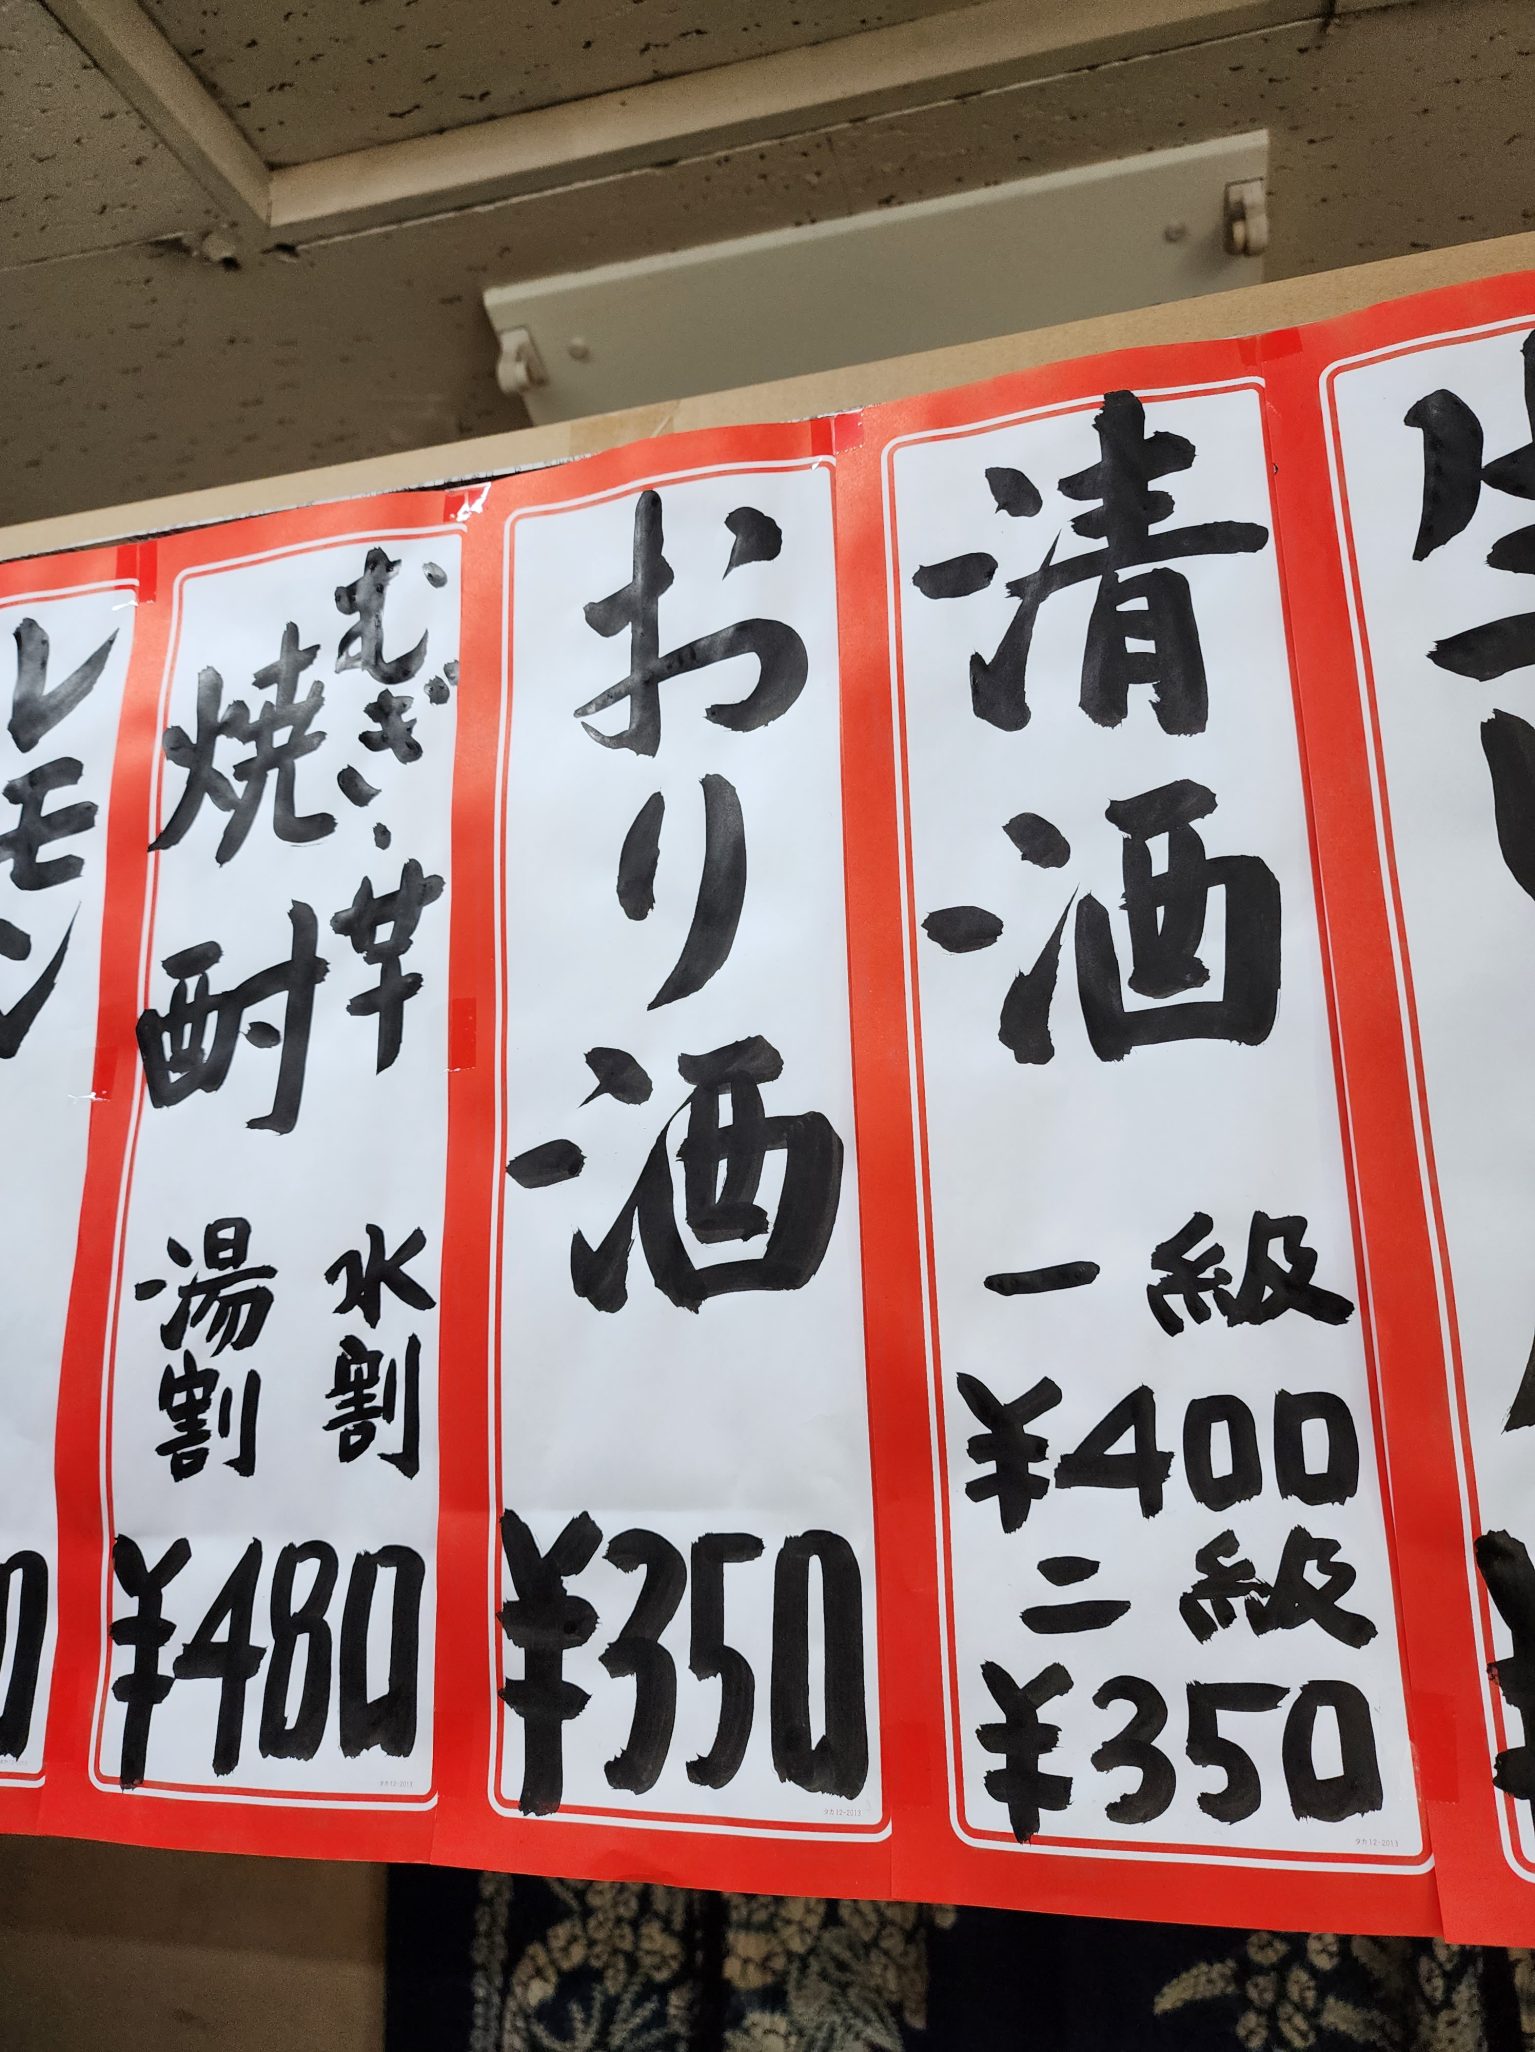 清酒
一級
¥400
二級
¥350
タカ12-2013
おり酒
¥350
タカ12-2013
むぎ・芋
焼酎
水割
湯割
¥480
タカ12-2013
レモン